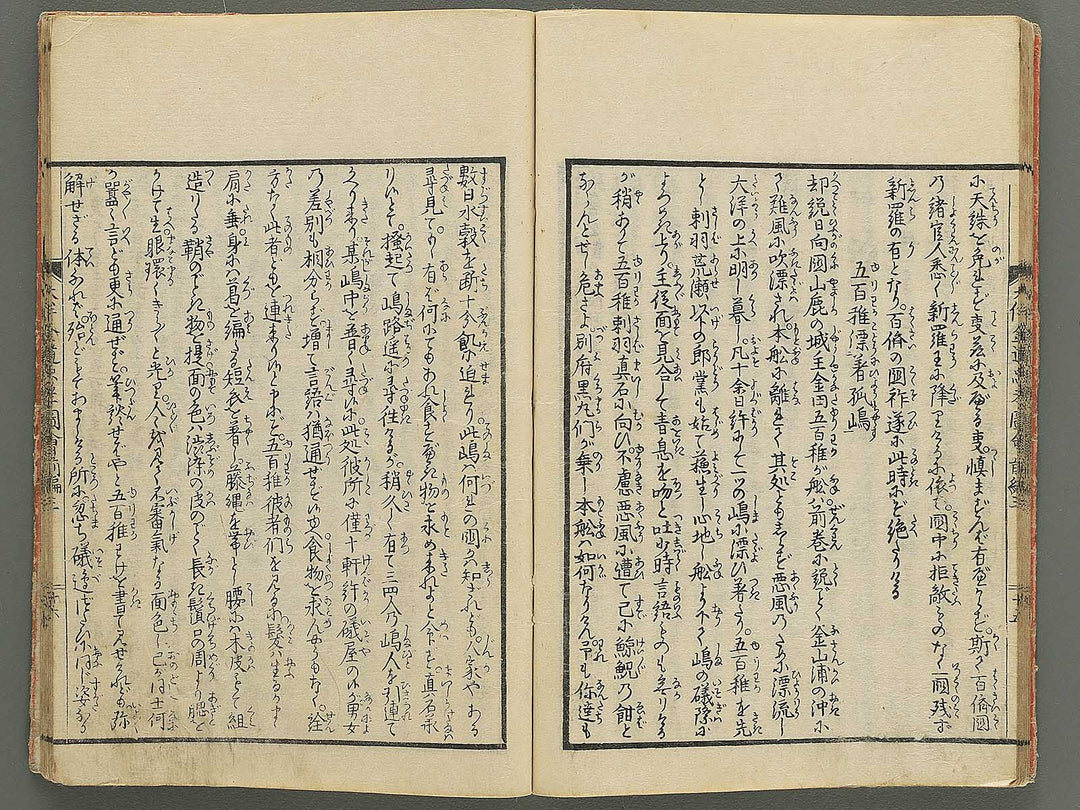 天誅を免れず変薨に及びける事。慎まずんば有べからず。斯て百済国
乃諸官人悉く新羅王に降りけるに依て。国中に拒敵ものなく一国残ず
新羅の有となり。百済の国祚遂に此時にぞ絶たりける
五百稚漂著孤嶋
却説日向国山鹿の城主金田五百稚が船ハ前巻に説ごとく釜山浦の沖に
て難風に吹漂され。本船に離れて其処ともしらず悪風乃ために漂流し
大洋の上に明し暮し凡十余日許にて一つの嶋に漂ひ着たり。五百稚を先
とし刺羽荒瀬以下の郎党も始て蘇生し心地し船より下て嶋の礒際に
よろめき上り。主従面を見合して喜息を吻と吐少時言語ものも無りける
が稍ありて五百稚刺羽真石に向ひ。不慮悪風に遭て已に鯨鯢乃餌と
ならんとせし危さよ。別府黒丸们が乗し本船ハ如何なりけん。予も你達も
数日水穀を断十分飢に迫れり。此嶋ハ何れの国か知ざれども。人家やある
尋見て。もし有ば何にてもあれ食すべき物を求め来れよと令す。真石承
りぬとて。掻起て嶋路遥に尋往けるが。稍久く有て三四人乃嶋人を引連て
立かへり来り某嶋中を普く尋ぬるに此処彼所に僅十軒許の礒屋のみ有男女
乃差別も相分らず増て言語ハ猶通ぜず食物を求んやうもなく。詮
方なく此者ともを連来りぬと申にぞ五百稚彼者们を見るに髪ハ生るまゝに
肩に垂。身にハ葛を編たる短衣を着し。藤縄を帯とし腰にハ木皮をもて組
造りたる鞘のごとき物を提面の色ハ渋漆の皮のごとく長き鬚口の周より腮を
かけて生眼環くきら〳〵と光り人々を見て不審気なる面色し己がどち何
か囂く言ども更に通ぜず。筆談せばやと五百稚まづ書て見せけれども弥
解せざる体なれバ殆どもてあましける所に忽ち礒辺より又同じ姿なる